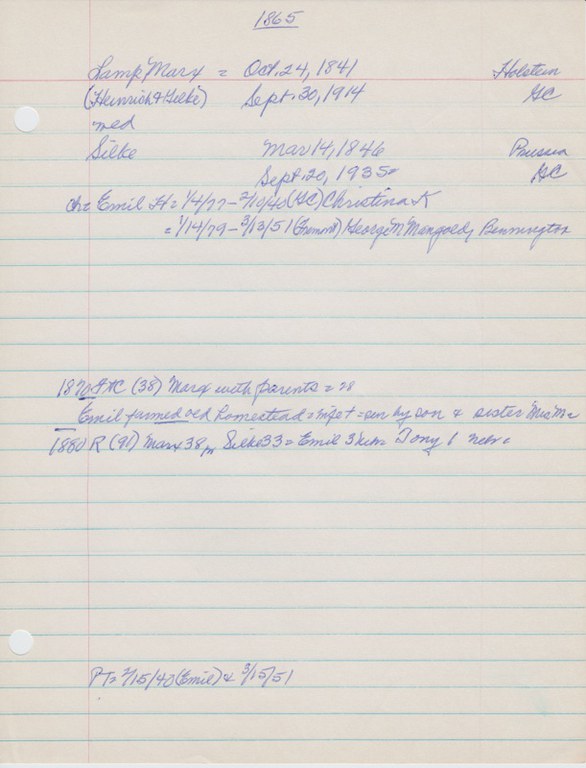 1865
Lamp Marx = Oct. 24, 1841 Holstein
(Heinrich & Silke) Sept. 30, 1914 GC
med
Silke Mar 14, 1846 Prussia
Sept. 20, 1935 GC
ch = Emil H = 1/4/77 – 2/10/40 (GC) Christina K
= 1/14/79 – 3/13/51 (Fremont) George M Mangold, Bennington
1870 (38) Marx with parents = 28
Emil farmed old homestead = & sister Mrs M =
1880 R (91) Marx 38, Silke 33 = Emil 3 Tony 1
PT = 2/15/40 (Emil) & 3/15/51